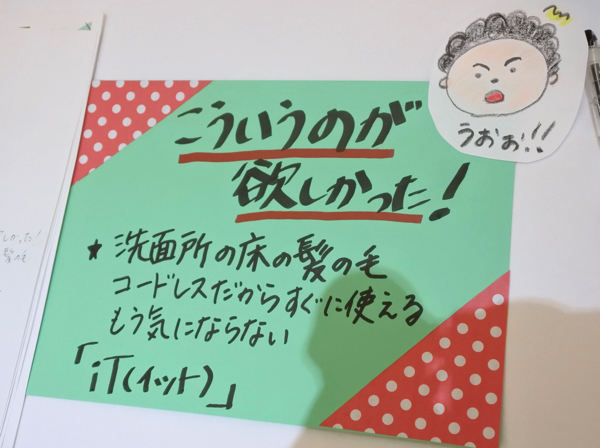 こういうのが
欲しかった!
うおぉ!!
★ 洗面所の床の髪の毛
コードレスだからすぐに使える
もう気にならない
「iT(イット)」
しかった!
髪の毛